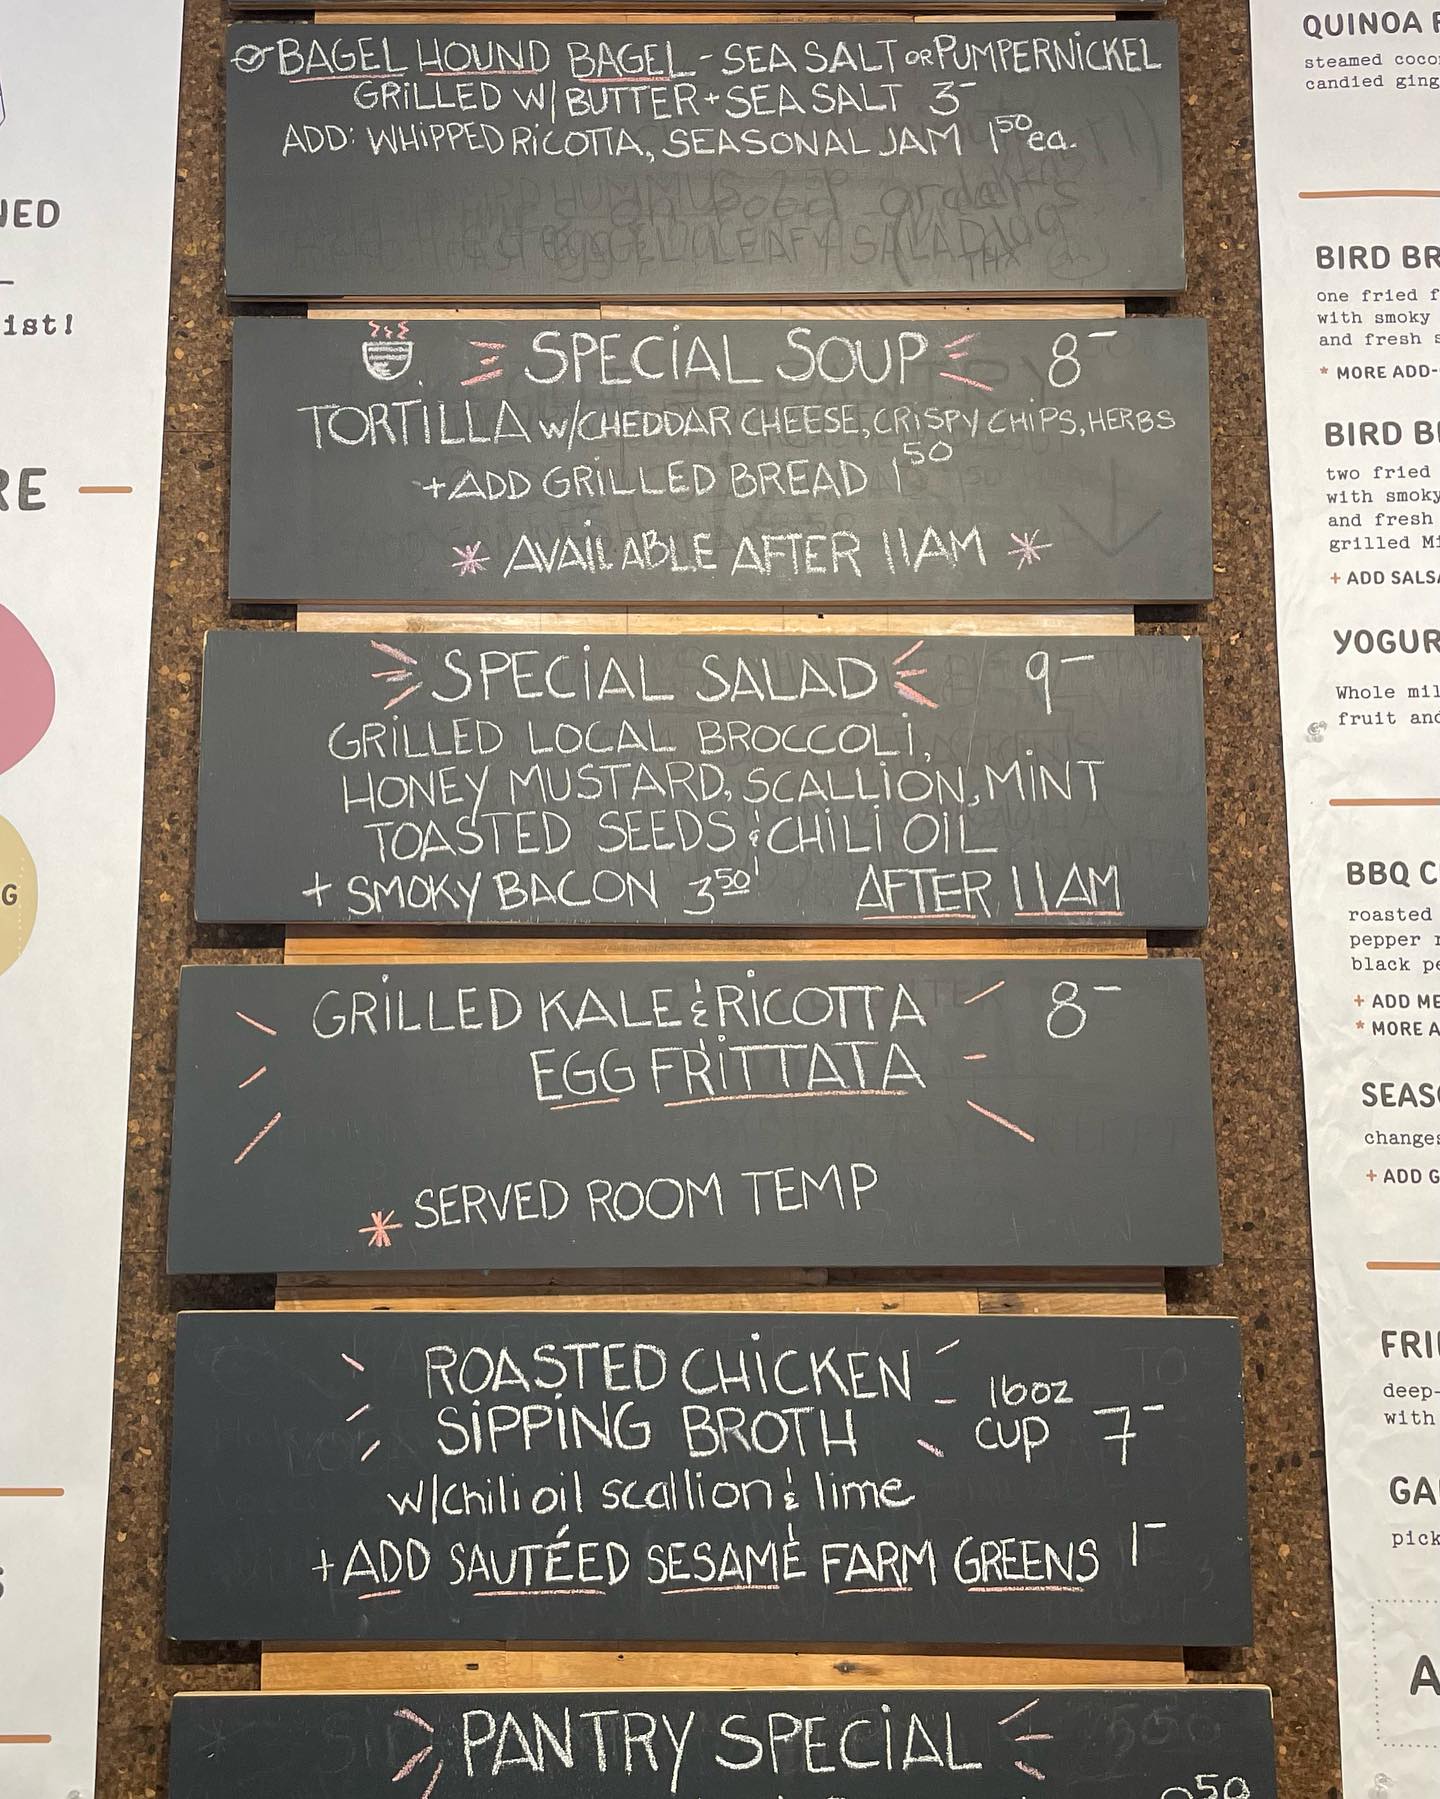 BAGEL HOUND BAGEL - SEA SALT OR PUMPERNICKEL
GRILLED W/ BUTTER + SEA SALT 3-
ADD: WHIPPED RICOTTA, SEASONAL JAM 1 50 ea.
SPECIAL SOUP 8-
TORTILLA w/CHEDDAR CHEESE, CRISPY CHIPS, HERBS
+ADD GRILLED BREAD 1 50
* AVAILABLE AFTER 11AM *
SPECIAL SALAD 9-
GRILLED LOCAL BROCCOLI,
HONEY MUSTARD, SCALLION, MINT
TOASTED SEEDS & CHILI OIL
+ SMOKY BACON 3 50! AFTER 11AM
GRILLED KALE & RICOTTA 8-
EGG FRITTATA
* SERVED ROOM TEMP
ROASTED CHICKEN 16oz
SIPPING BROTH CUP 7-
w/chili oil scallion & lime
+ADD SAUTÉED SESAME FARM GREENS 1-
PANTRY SPECIAL
50
NED
ist!
RE
G
S
QUINOA
steamed coco
candied ging
BIRD BR
one fried f
with smoky
and fresh s
* MORE ADD-
BIRD B
two fried
with smoky
and fresh
grilled Mi
+ ADD SALSA
YOGUR
Whole mil
fruit and
BBQ C
roasted
pepper
black pe
+ ADD ME
* MORE A
SEAS
changes
+ ADD G
FRI
deep-
with
GA
pick
A